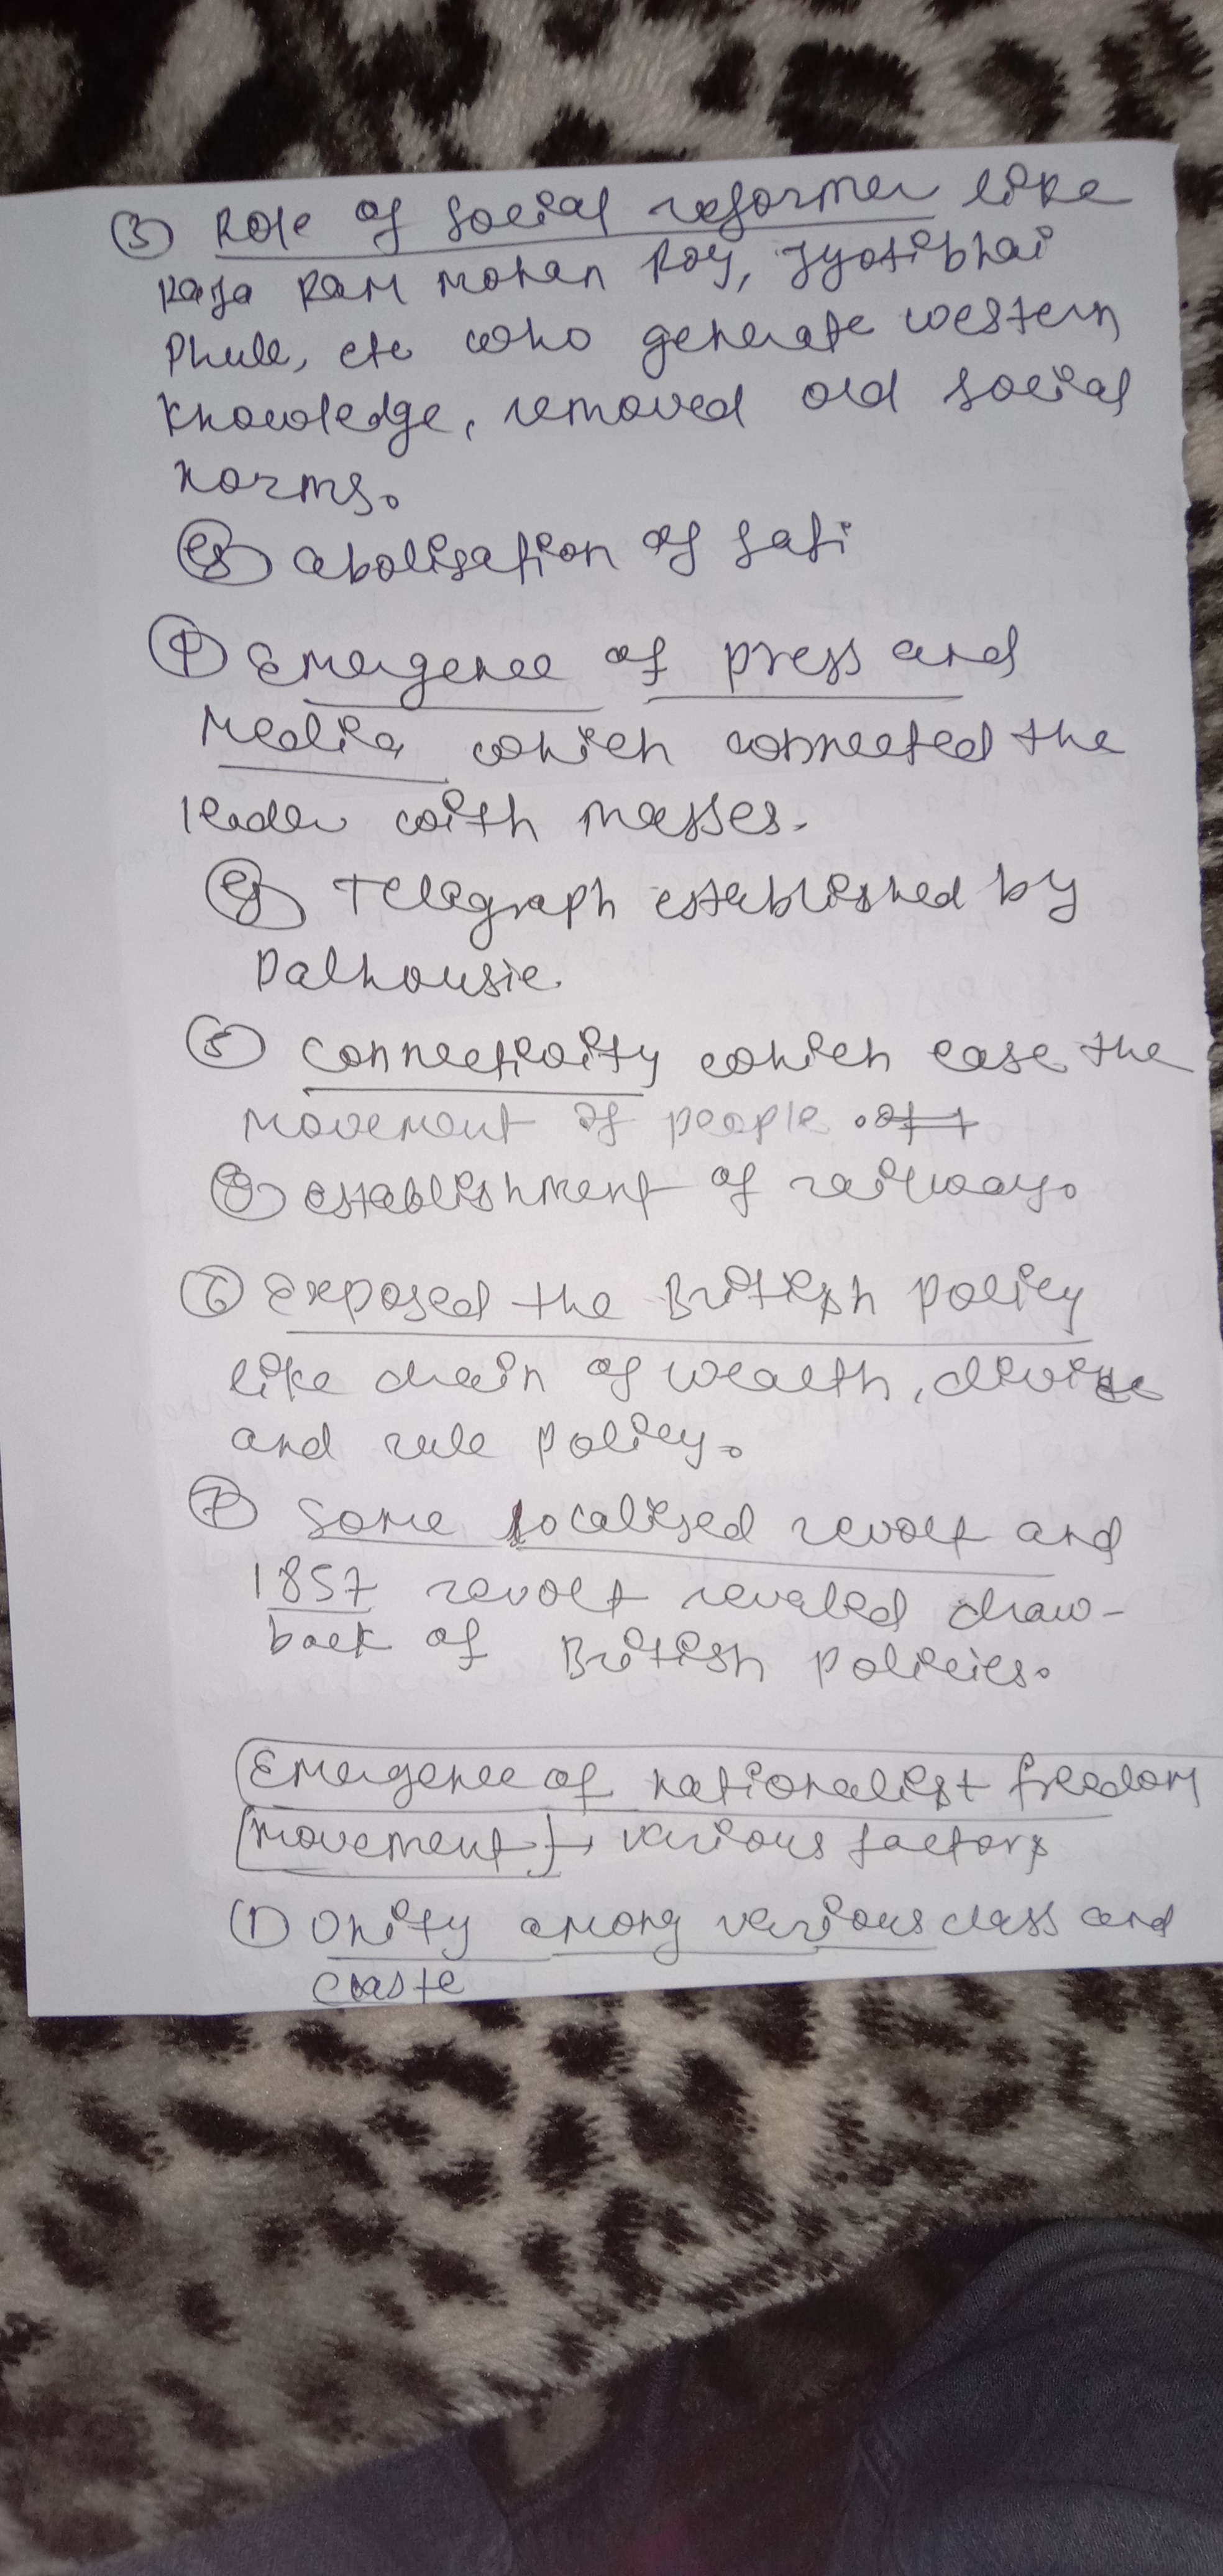 ③ Role of social reformer like
Raja Ram Mohan Roy, Jyotibhai
Phule, etc who generate western
knowledge, removed old social
norms.
eg abolisation of sati
④ Emergence of press and
Media which connected the
leader with masses.
eg Telegraph established by
Dalhousie.
⑤ connectivity which ease the
movement of people.
eg establishment of railway.
⑥ Exposed the British policy
like drain of wealth, divide
and rule policy.
⑦ Some localised revolt and
1857 revolt revealed draw-
back of British policies.
Emergence of nationalist freedom
movement → various factors
① Unity among various class and
caste